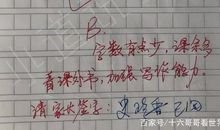 B.
字数有点少,课余多
看课外书,加强写作能力。
请家长签字:
百家号/十六哥哥看世